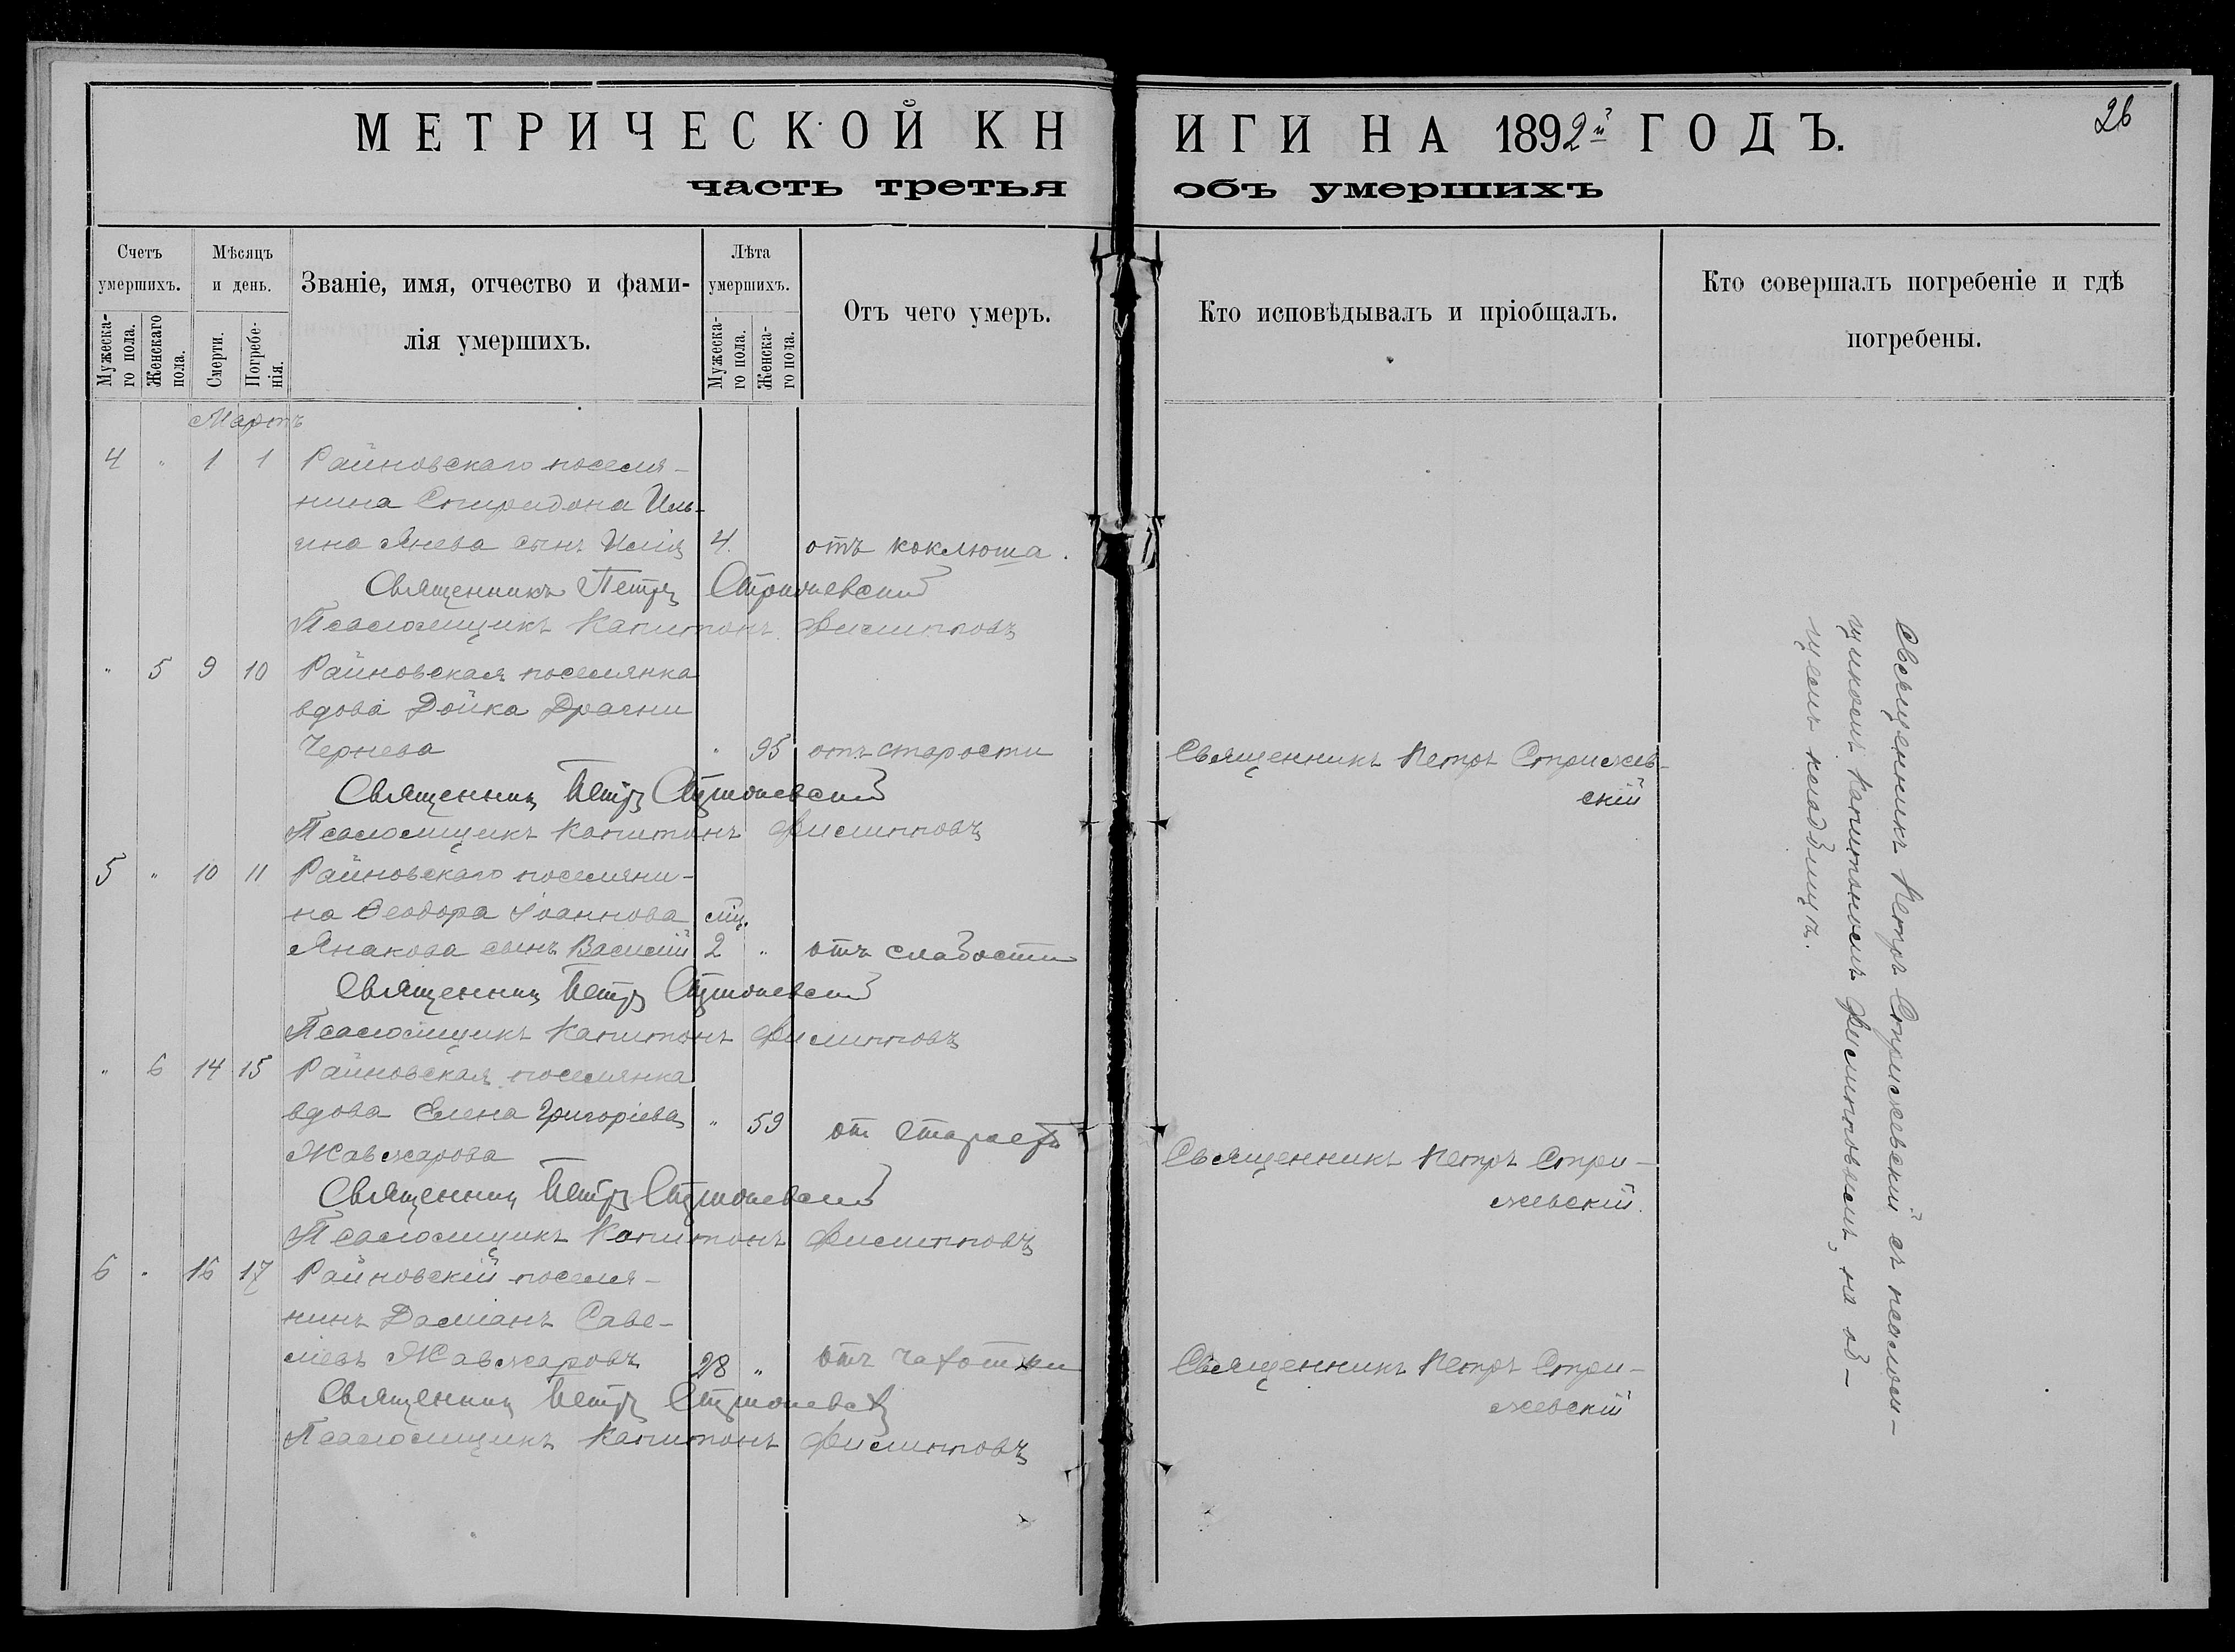 МЕТРИЧЕСКОЙ КНИГИ НА 1892й ГОДЪ.
26
часть третья объ умершихъ
Счетъ умершихъ.
Мужеска-го пола.
Женскаго пола.
Мѣсяцъ и день.
Смерти.
Погребе-нія.
Званіе, имя, отчество и фами-
лія умершихъ.
Лѣта умершихъ.
Мужеска-го пола.
Женска-го пола.
Отъ чего умеръ.
Кто исповѣдывалъ и пріобщалъ.
Кто совершалъ погребеніе и гдѣ
погребены.
Мартъ
4 " 1 1 Райновскаго поселя-
нина Спиридона Иль-
ина Янева сынъ Илія 4. отъ коклюша.
Священникъ Петръ Стрижевский
Псаломщикъ Капитонъ Филипповъ
" 5 9 10 Райновская поселянка
вдова Дойка Драгни
Чернева " 95 отъ старости Священникъ Петръ Стрижев-
скій
Священникъ Петръ Стрижевский
Псаломщикъ Капитонъ Филипповъ
5 " 10 11 Райновскаго поселяни-
на Ѳеодора Іоаннова мц.
Янакова сынъ Василій 2 " отъ слабости
Священникъ Петръ Стрижевский
Псаломщикъ Капитонъ Филипповъ
" 6 14 15 Райновская поселянка
вдова Елена Григоріева " 59 от старости
Жавжарова Священникъ Петръ Стри-
жевскій.
Священникъ Петръ Стрижевский
Псаломщикъ Капитонъ Филипповъ
6 " 16 17 Райновскій поселя-
нинъ Даміанъ Саве-
ліевъ Жавжаровъ 28 " отъ чахотки Священникъ Петръ Стри-
жевскій
Священникъ Петръ Стрижевск
Псаломщикъ Капитонъ Филипповъ
Священникъ Петръ Стрижевскій съ псалом-
щикомъ Капитономъ Филипповымъ, на об-
щемъ кладбищѣ.